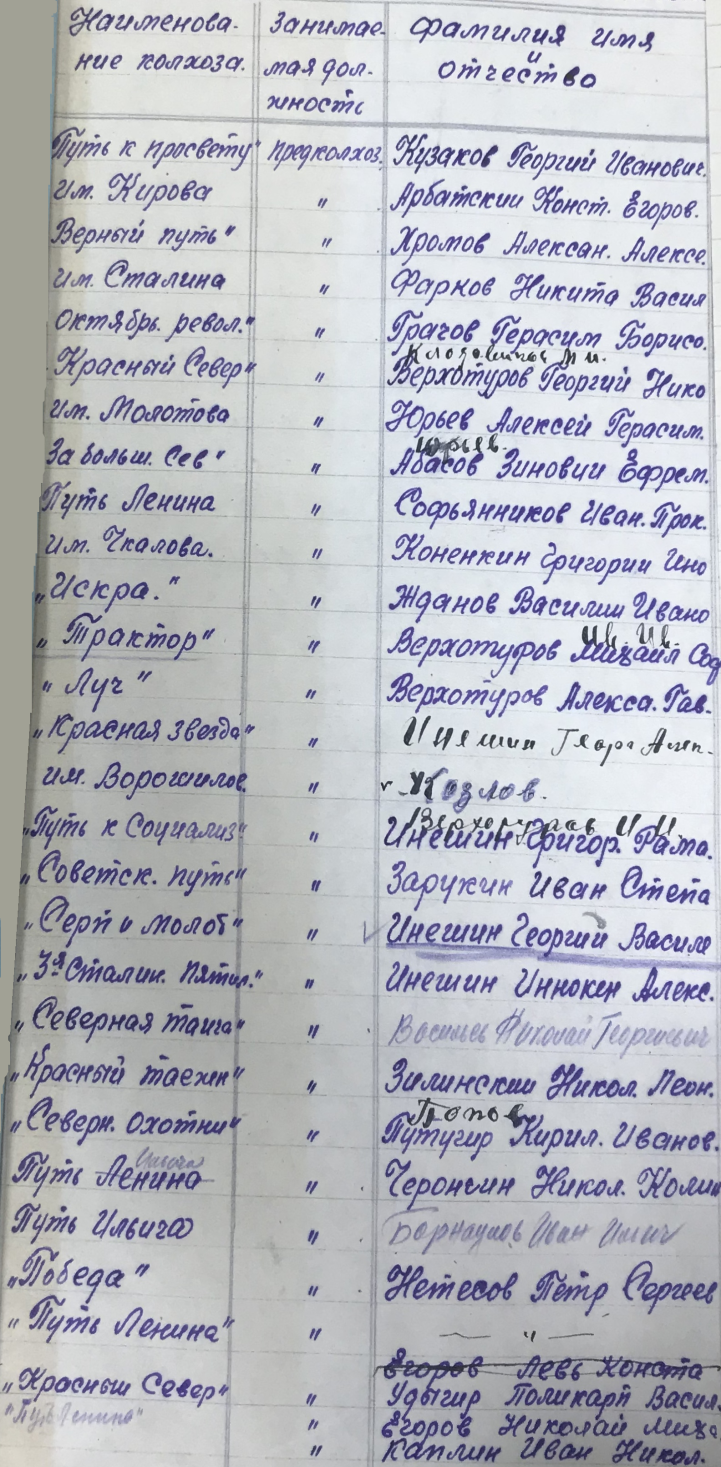 Наименова- Занимае- фамилия имя
ние колхоза. мая дол- и
жность отчество
Путь к просвету" предколхоз. Кузаков Георгий Иванович.
им. Кирова " Арбатский Конст. Егоров.
Верный путь" " Хромов Алексан. Алексе.
им. Сталина " Фарков Никита Васил
Октябрь. револ." " Грачов Герасим Борисо.
Красный Север" " Верхотуров Георгий Нико
им. Молотова " Юрьев Алексей Герасим.
Юрьев.
За больш. Сев" " Абасов Зиновий Ефрем.
Путь Ленина " Софьянников Иван. Прок.
им. Чкалова. " Коненкин Григории Ино
„Искра." " Жданов Василии Ивано
Ив. Ив.
„Трактор" " Верхотуров Михаил Соф
„Луч" " Верхотуров Алекса. Гав.
„Красная звезда" " Инешин Геор
им. Ворошилов. " Козлов.
Верхотуров И И.
„Путь к Социализ" " Инешин Григор. Рома.
„Советск. путь" " Зарукин Иван Степа
„Серп и молот" " Инешин Георгий Василе
„3я Сталин. пятил." " Инешин Иннокен Алекс.
„Северная тайга" " Васильев Николай Георгиевич
„Красный таежн" " Зилинский Никол. Леон.
Попов
„Северн. Охотни" " Путугир Кирил. Иванов.
Путь Ленина " Черончин Никол. Коли
Путь Ильича " Иван
„Победа" " Нетесов Петр Сергеев
„Путь Ленина" " — " —
Егоров Левь Конста
„Красный Север" " Удыгир Поликарп Васил.
"Путь Ленина" " Егоров Николай Миха
" Каплин Иван Никол.